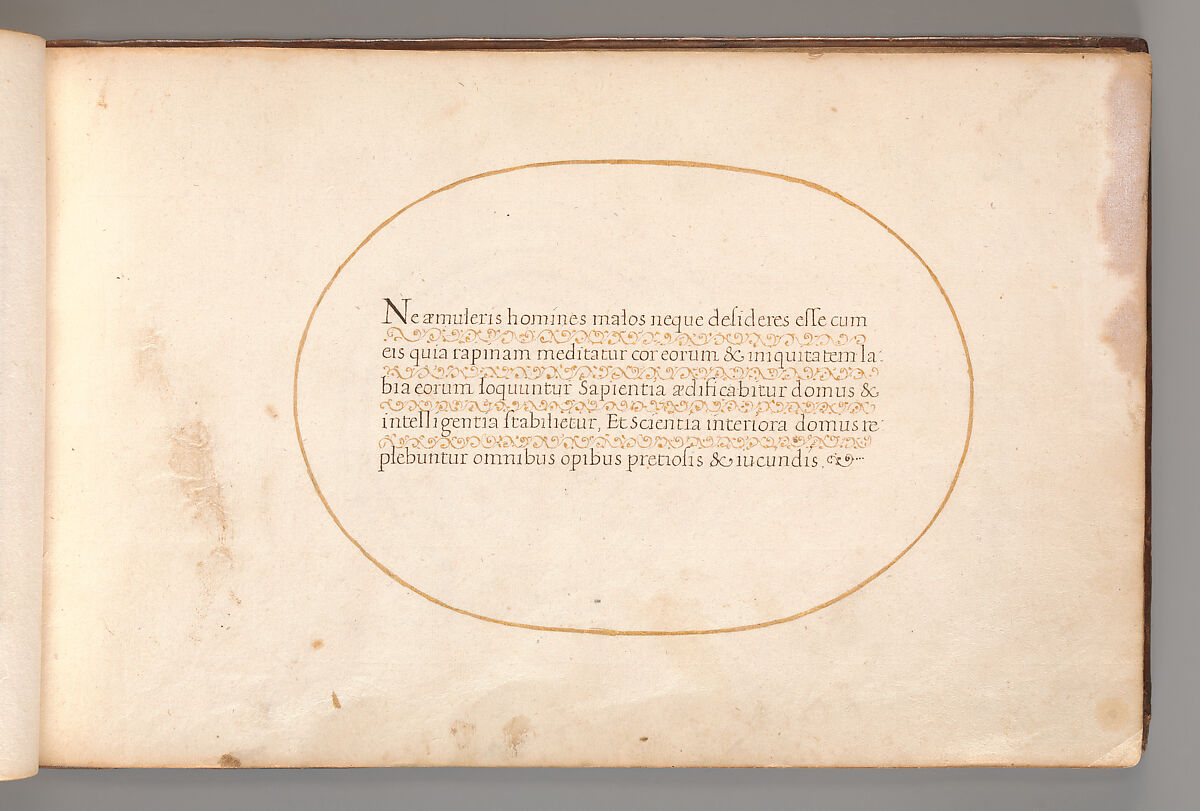 Ne æmuleris homines malos neque desideres esse cum
eis quia rapinam meditatur cor eorum & iniquitatem la:
bia eorum loquuntur Sapientia ædificabitur domus &
intelligentia stabilietur, Et Scientia interiora domus re:
plebuntur omnibus opibus pretiosis & iucundis.